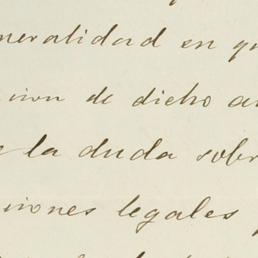 neralidad en qu
cion de dicho a
e la duda sobr
ciones legales